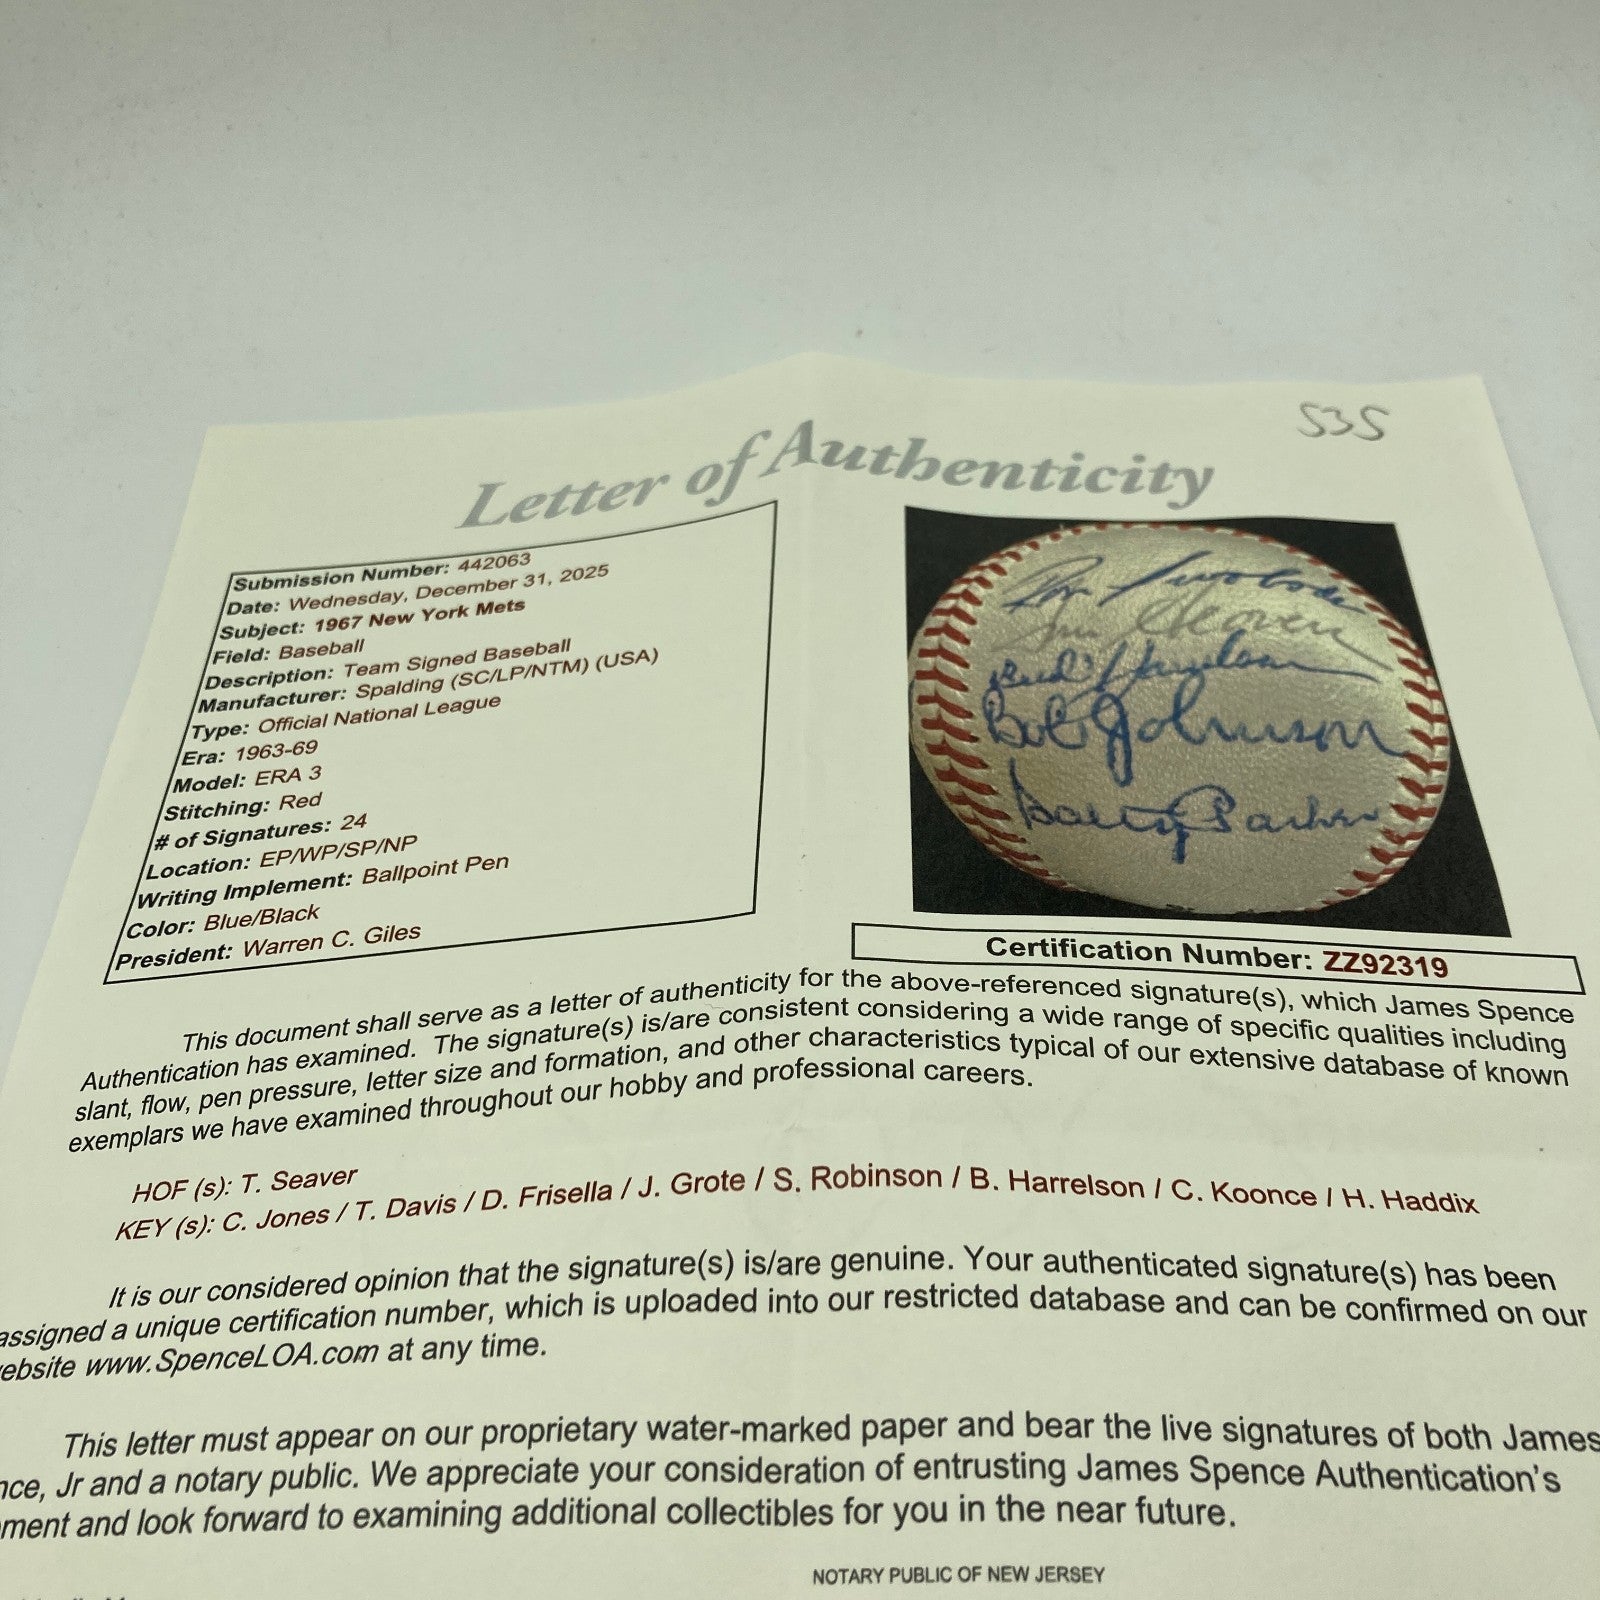 S3S
Letter of Authenticity
Submission Number: 442063
Date: Wednesday, December 31, 2025
Subject: 1967 New York Mets
Field: Baseball
Description: Team Signed Baseball
Manufacturer: Spalding (SC/LP/NTM) (USA)
Type: Official National League
Era: 1963-69
Model: ERA 3
Stitching: Red
# of Signatures: 24
Location: EP/WP/SP/NP
Writing Implement: Ballpoint Pen
Color: Blue/Black
President: Warren C. Giles
Ron Swoboda
Tom Seaver
Bud Harrelson
Bob Johnson
Harry Parker
Certification Number: ZZ92319
This document shall serve as a letter of authenticity for the above-referenced signature(s), which James Spence
Authentication has examined. The signature(s) is/are consistent considering a wide range of specific qualities including
slant, flow, pen pressure, letter size and formation, and other characteristics typical of our extensive database of known
exemplars we have examined throughout our hobby and professional careers.
HOF (s): T. Seaver
KEY (s): C. Jones / T. Davis / D. Frisella / J. Grote / S. Robinson / B. Harrelson / C. Koonce / H. Haddix
It is our considered opinion that the signature(s) is/are genuine. Your authenticated signature(s) has been
assigned a unique certification number, which is uploaded into our restricted database and can be confirmed on our
ebsite www.SpenceLOA.com at any time.
This letter must appear on our proprietary water-marked paper and bear the live signatures of both James
nce, Jr and a notary public. We appreciate your consideration of entrusting James Spence Authentication's
ment and look forward to examining additional collectibles for you in the near future.
NOTARY PUBLIC OF NEW JERSEY